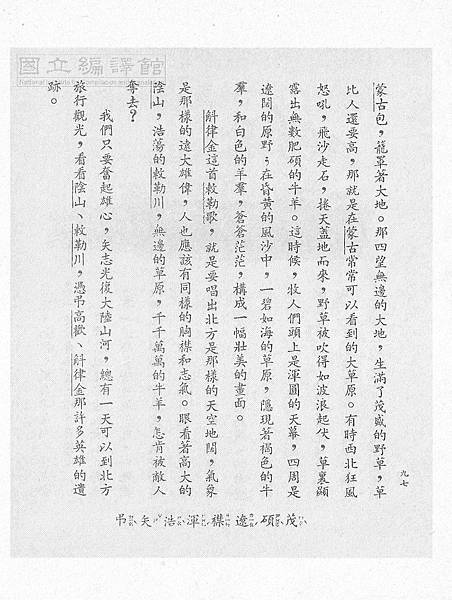 國立編譯館
蒙古包，籠罩著大地。那四望無邊的大地，生滿了茂盛的野草，草
比人還要高，那就是在蒙古常常可以看到的大草原。有時西北狂風
怒吼，飛沙走石，捲天蓋地而來，野草被吹得如波浪起伏，草裏顯
露出無數肥碩的牛羊。這時候，牧人們頭上是渾圓的天幕，四周是
遼闊的原野；在昏黃的風沙中，一碧如海的草原，隱現著褐色的牛
羣，和白色的羊羣，蒼蒼茫茫，構成一幅壯美的畫面。
斛律金這首敕勒歌，就是要唱出北方是那樣的天空地闊，氣象
是那樣的遠大雄偉，人也應該有同樣的胸襟和志氣。眼看著高大的
陰山，浩蕩的敕勒川，無邊的草原，千千萬萬的牛羊，怎肯被敵人
奪去？
我們只要奮起雄心，矢志光復大陸山河，總有一天可以到北方
旅行觀光，看看陰山、敕勒川，憑弔高歡、斛律金那許多英雄的遺
跡。
茂碩遼襟渾浩矢弔
九七